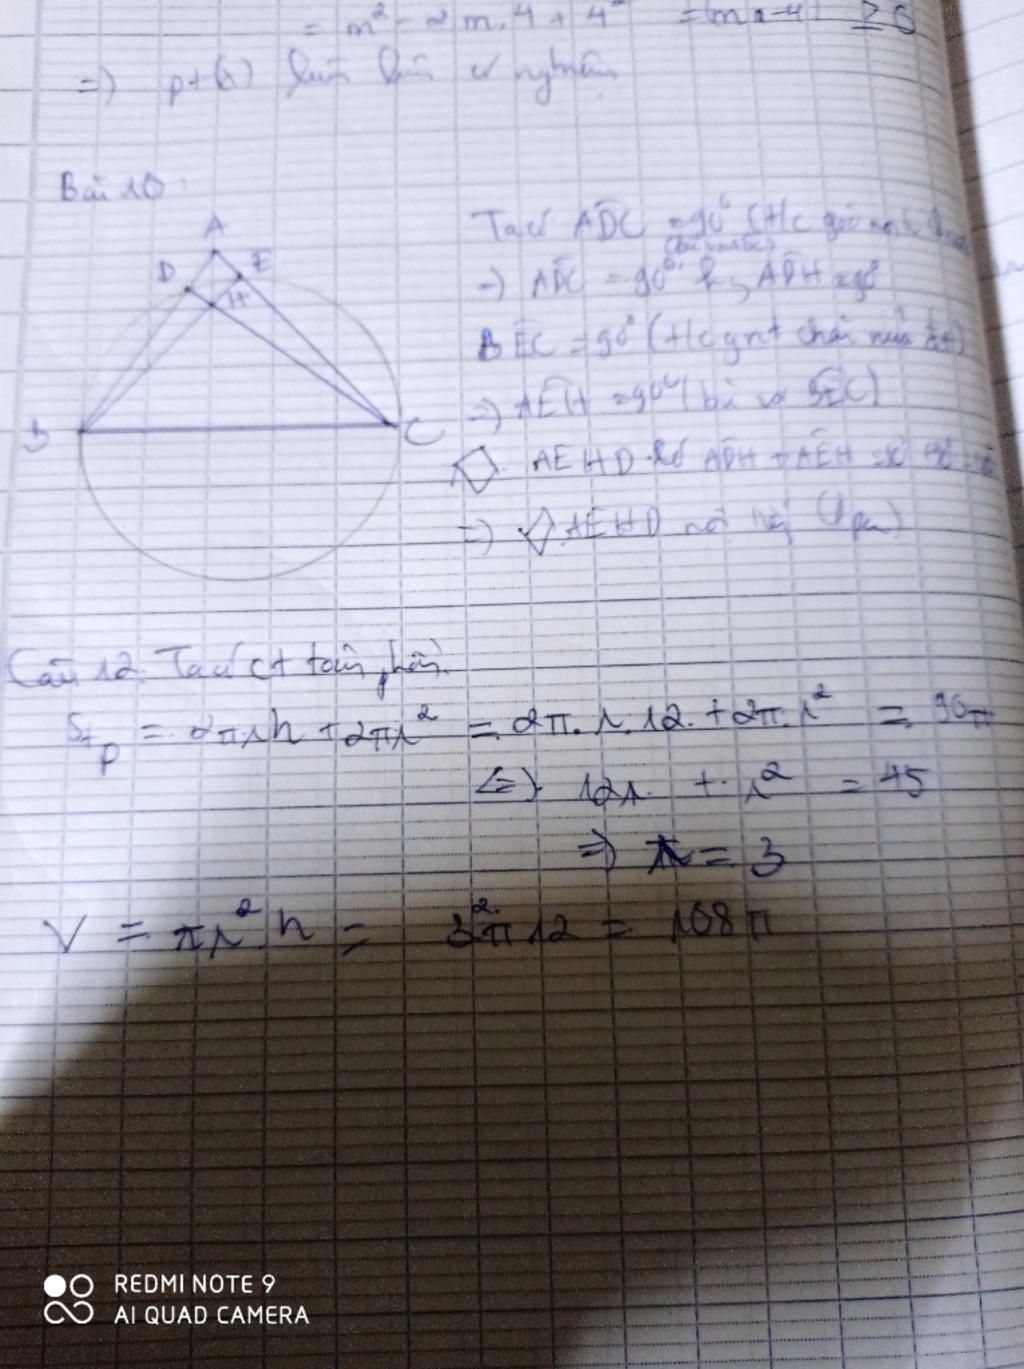 = m² - 2m.4 + 4² = (m - 4) ≥ 0
=> pt (1) luôn luôn có nghiệm
Bài 10:
A
D E
H
B C
Ta có ADC = 90° (
=> ADC = 90° ADH = 90°
BEC = 90° (Hc gnt chắn nửa
=> AEH = 90° (bù với BEC)
◇ AEHD có ADH + AEH =
=> ◇ AEHD nội tiếp (đpcm)
Câu 12: Ta có ct toàn phần
Stp = 2πrh + 2πr² = 2π.r.12 + 2π.r² = 90π
<=> 12r + r² = 45
=> r = 3
V = πr².h = 3²π12 = 108π
REDMI NOTE 9
AI QUAD CAMERA